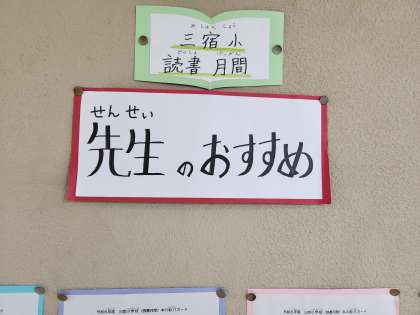 みしゅく しょう
三宿 小
どくしょ げっかん
読書 月間
せんせい
先生 のおすすめ